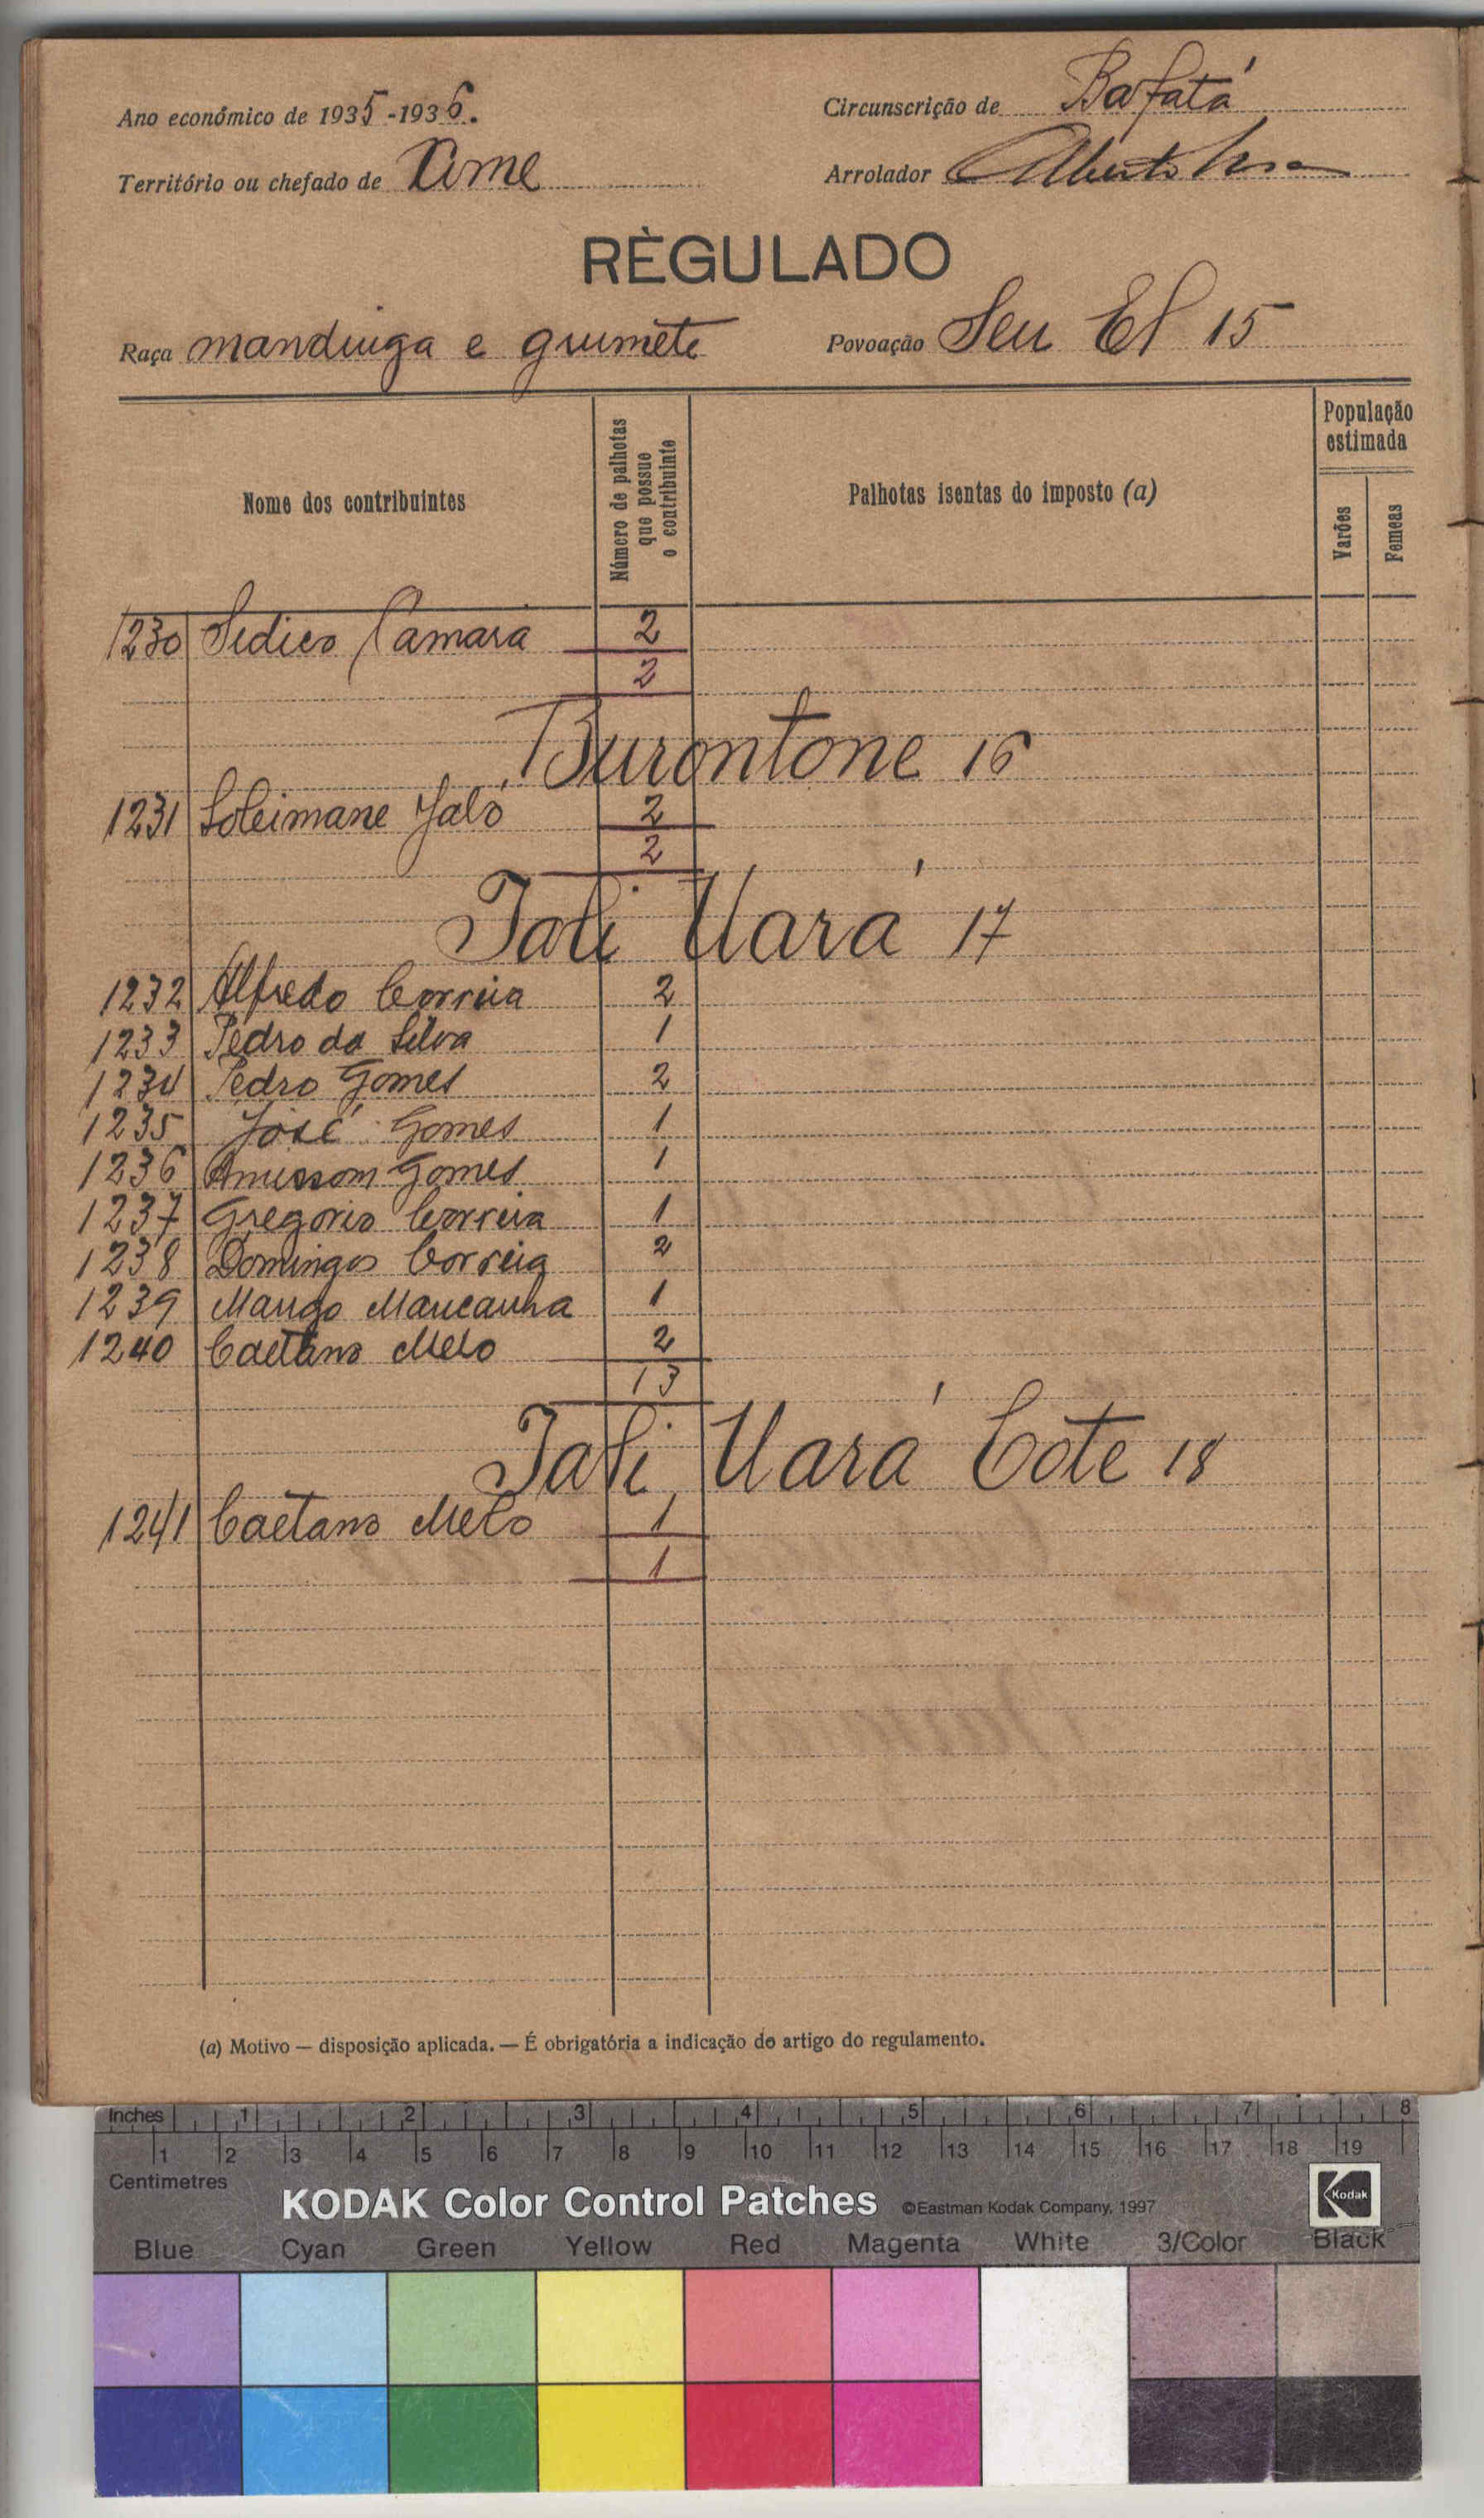 Ano económico de 1935-1936.
Circunscrição de Bafatá
Território ou chefado de Xime
Arrolador Alberto
RÈGULADO
Raça mandinga e grumete
Povoação Seu El 15
Nome dos contribuintes
Número de palhotas que possue o contribuinte
Palhotas isentas do imposto (a)
População estimada
Varões
Femeas
1230 Camara 2
2
Burontone 16
1231 Soleimane Jaló 2
2
Tali Uará 17
1232 Alfredo Correia 2
1233 Pedro da Silva 1
1234 Pedro Gomes 2
1235 José Gomes 1
1236 Gomes 1
1237 Gregorio Correia 1
1238 Domingos Correia 2
1239 Mango Mancanha 1
1240 Caetano Melo 2
13
Tali Uará Cote 18
1241 Caetano Melo 1
1
(a) Motivo — disposição aplicada. — É obrigatória a indicação do artigo do regulamento.
Inches 1 2 3 4 5 6 7 8
1 2 3 4 5 6 7 8 9 10 11 12 13 14 15 16 17 18 19
Centimetres
KODAK Color Control Patches ©Eastman Kodak Company, 1997
Kodak
Blue Cyan Green Yellow Red Magenta White 3/Color Black